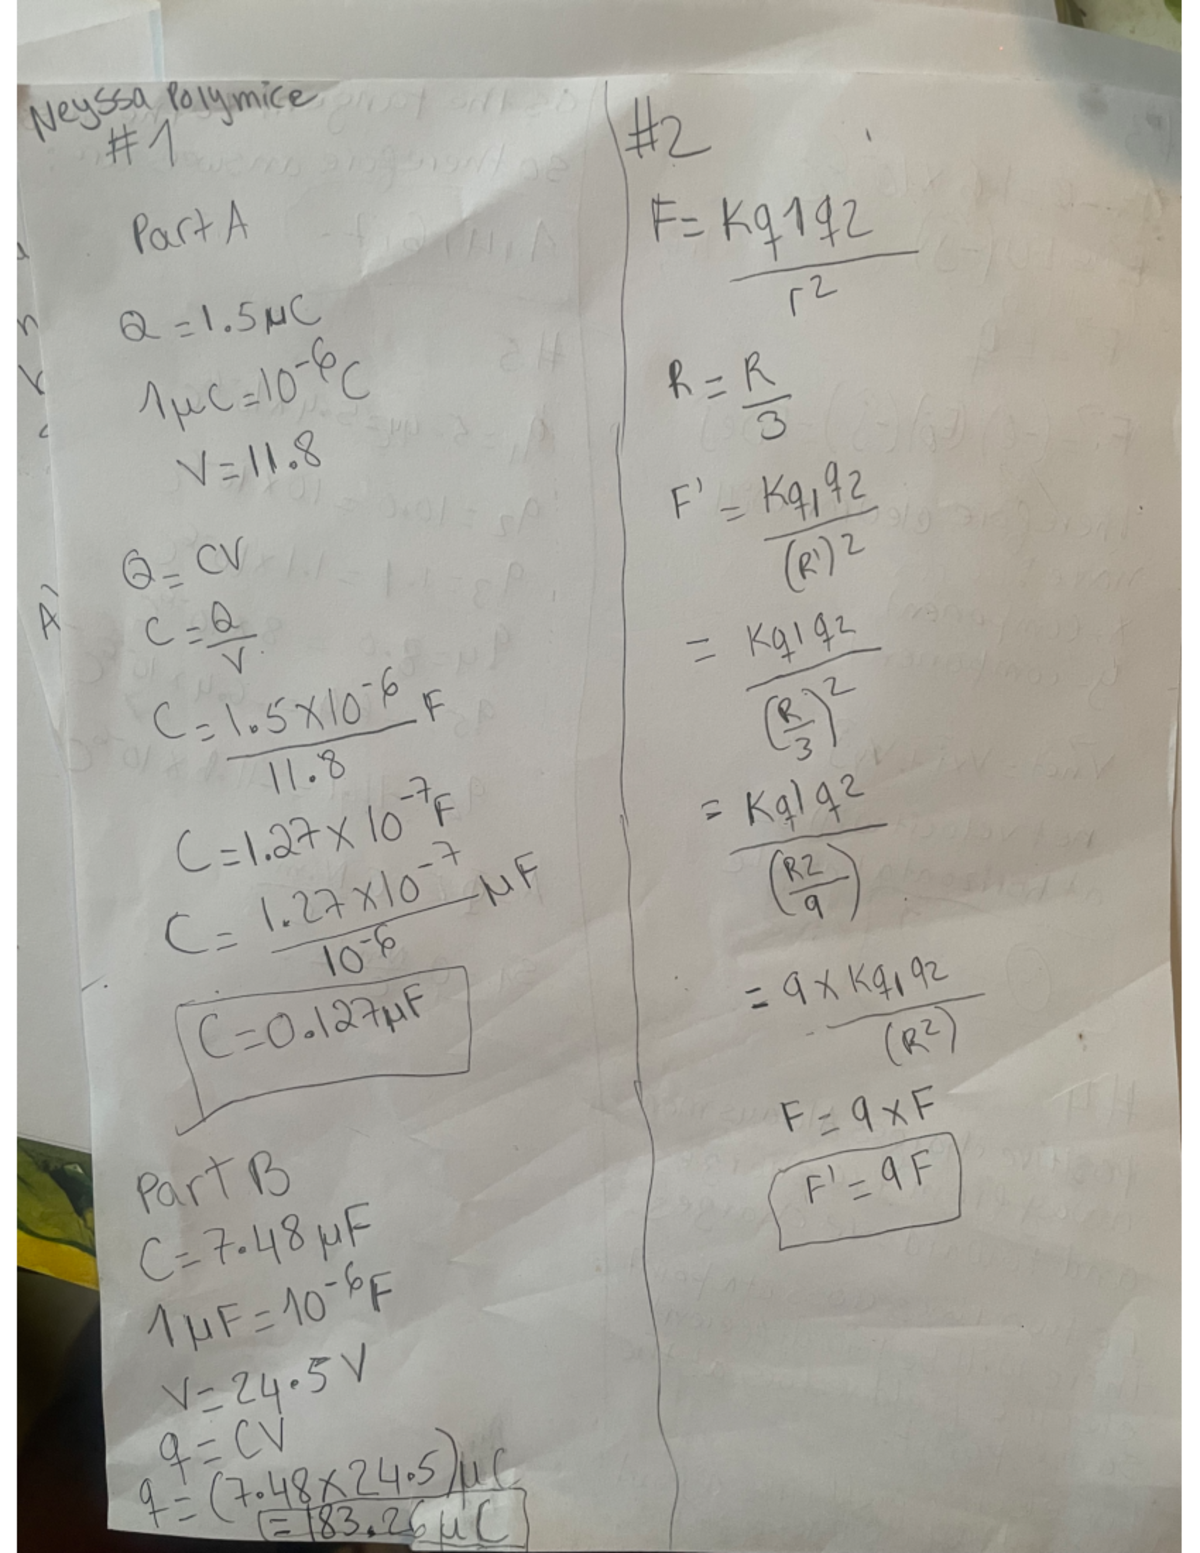 Neyssa Polymice
#1
Part A
Q = 1.5 μC
1μC = 10⁻⁶C
V = 11.8
Q = CV
C = Q
V
C = 1.5 X 10⁻⁶ F
11.8
C = 1.27 X 10⁻⁷ F
C = 1.27 X 10⁻⁷ μF
10⁻⁶
C = 0.127μF
Part B
C = 7.48 μF
1μF = 10⁻⁶F
V = 24.5 V
q = CV
q = (7.48 X 24.5) μC
= 183.26 μC
#2
F = Kq1q2
r²
R = R
3
F' = Kq₁q2
(R')²
= Kq1q2
(R/3)²
= Kq1q2
(R2/9)
= 9 x Kq₁q2
(R²)
F = 9 x F
F' = 9F